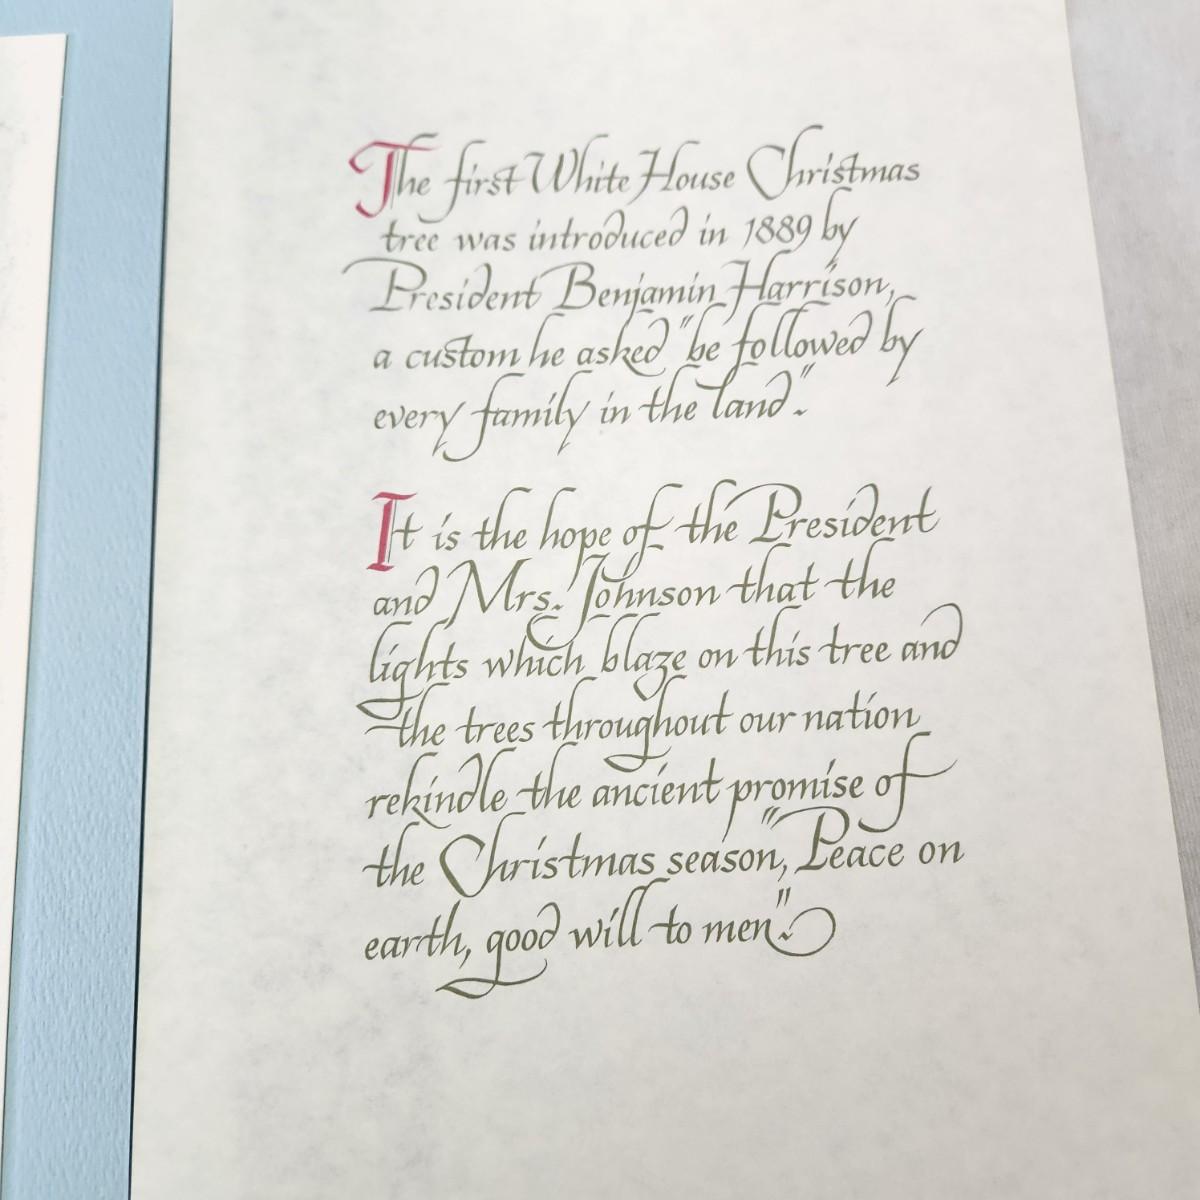 The first White House Christmas
tree was introduced in 1889 by
President Benjamin Harrison,
a custom he asked "be followed by
every family in the land".
It is the hope of the President
and Mrs. Johnson that the
lights which blaze on this tree and
the trees throughout our nation
rekindle the ancient promise of
the Christmas season, "Peace on
earth, good will to men".